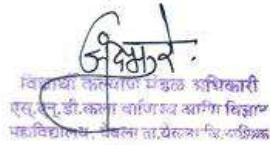 विद्यार्थी कल्याण मंडळ अधिकारी
एस्.एन.डी.कला वाणिज्य आणि विज्ञान
महाविद्यालय, येवला ता.येवला जि.नाशिक